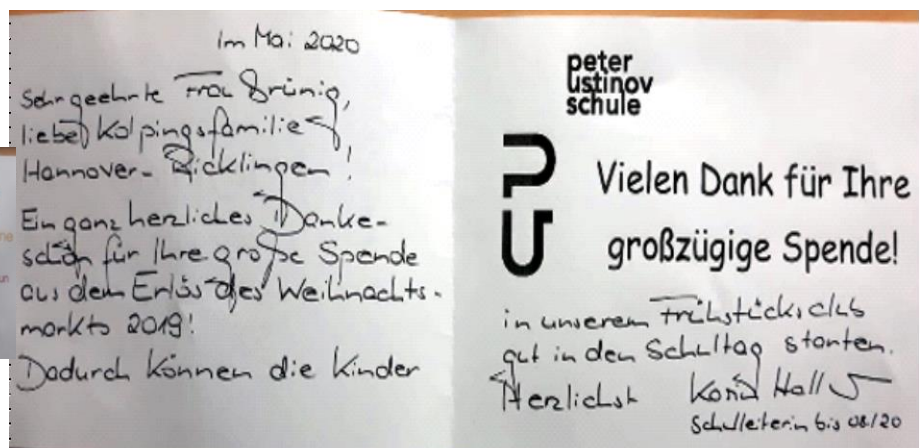 Im Mai 2020
Sehr geehrte Frau Brünig,
liebe Kolpingsfamilie
Hannover-Ricklingen!
Ein ganz herzliches Danke-
schön für Ihre große Spende
aus dem Erlös des Weihnachts-
markts 2019!
Dadurch können die Kinder
peter
ustinov
schule
PU
Vielen Dank für Ihre
großzügige Spende!
in unserem Frühstücksclub
gut in den Schultag starten.
Herzlichst
Schulleiterin bis 08/20